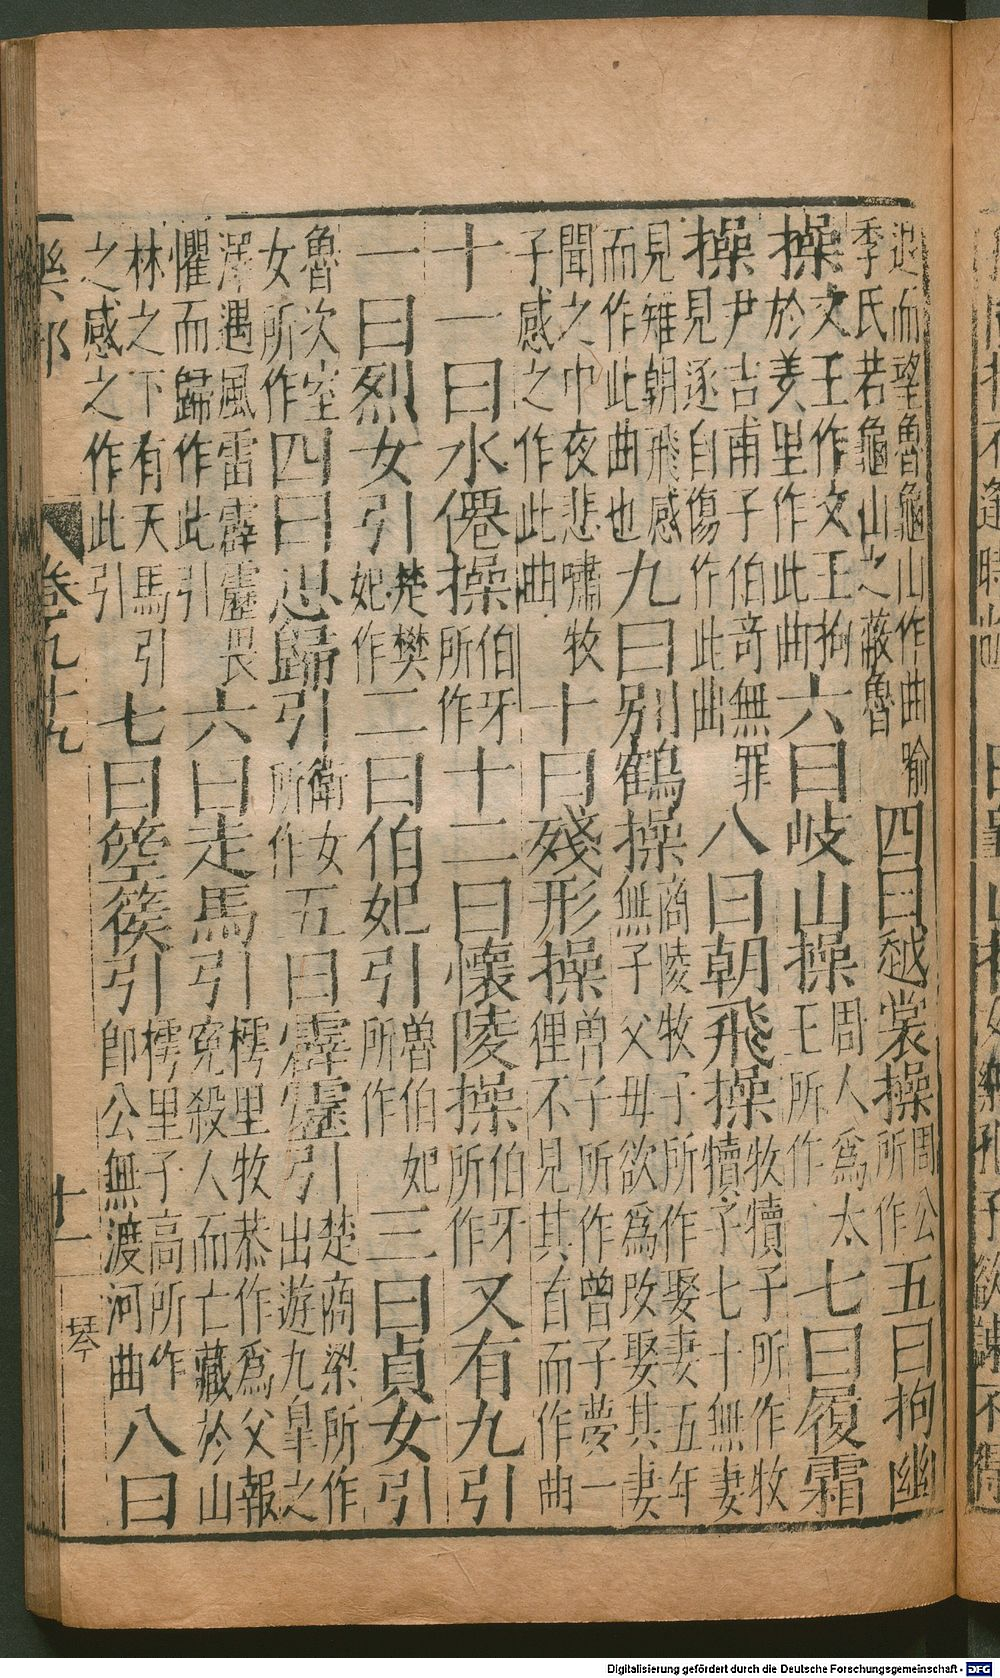 退而望魯龜山作曲喻季氏若龜山之蔽魯四曰越裳操周公所作五曰拘幽
操文王作文王拘於羑里作此曲六曰岐山操周人爲太王所作七曰履霜
操尹吉甫子伯奇無罪見逐自傷作此曲八曰朝飛操牧犢子所作牧犢子七十無妻
見雉朝飛感而作此曲也九曰別鶴操商陵牧子所作娶妻五年無子父母欲爲改娶其妻
聞之中夜悲嘯牧子感之作此曲十曰殘形操曾子所作曾子夢一狸不見其首而作曲
十一曰水僊操伯牙所作十二曰懷陵操伯牙所作又有九引
一曰烈女引楚樊妃作二曰伯妃引魯伯妃所作三曰貞女引
魯次室女所作四曰思歸引衛女所作五曰霹靂引楚商梁所作出遊九皐之
澤遇風雷霹靂畏懼而歸作此引六曰走馬引樗里牧恭作爲父報寃殺人而亡藏於山
林之下有天馬引之感之作此引七曰箜篌引樗里子高所作卽公無渡河曲八曰
卷九十九 十一 琴
Digitalisierung gefördert durch die Deutsche Forschungsgemeinschaft - DFG